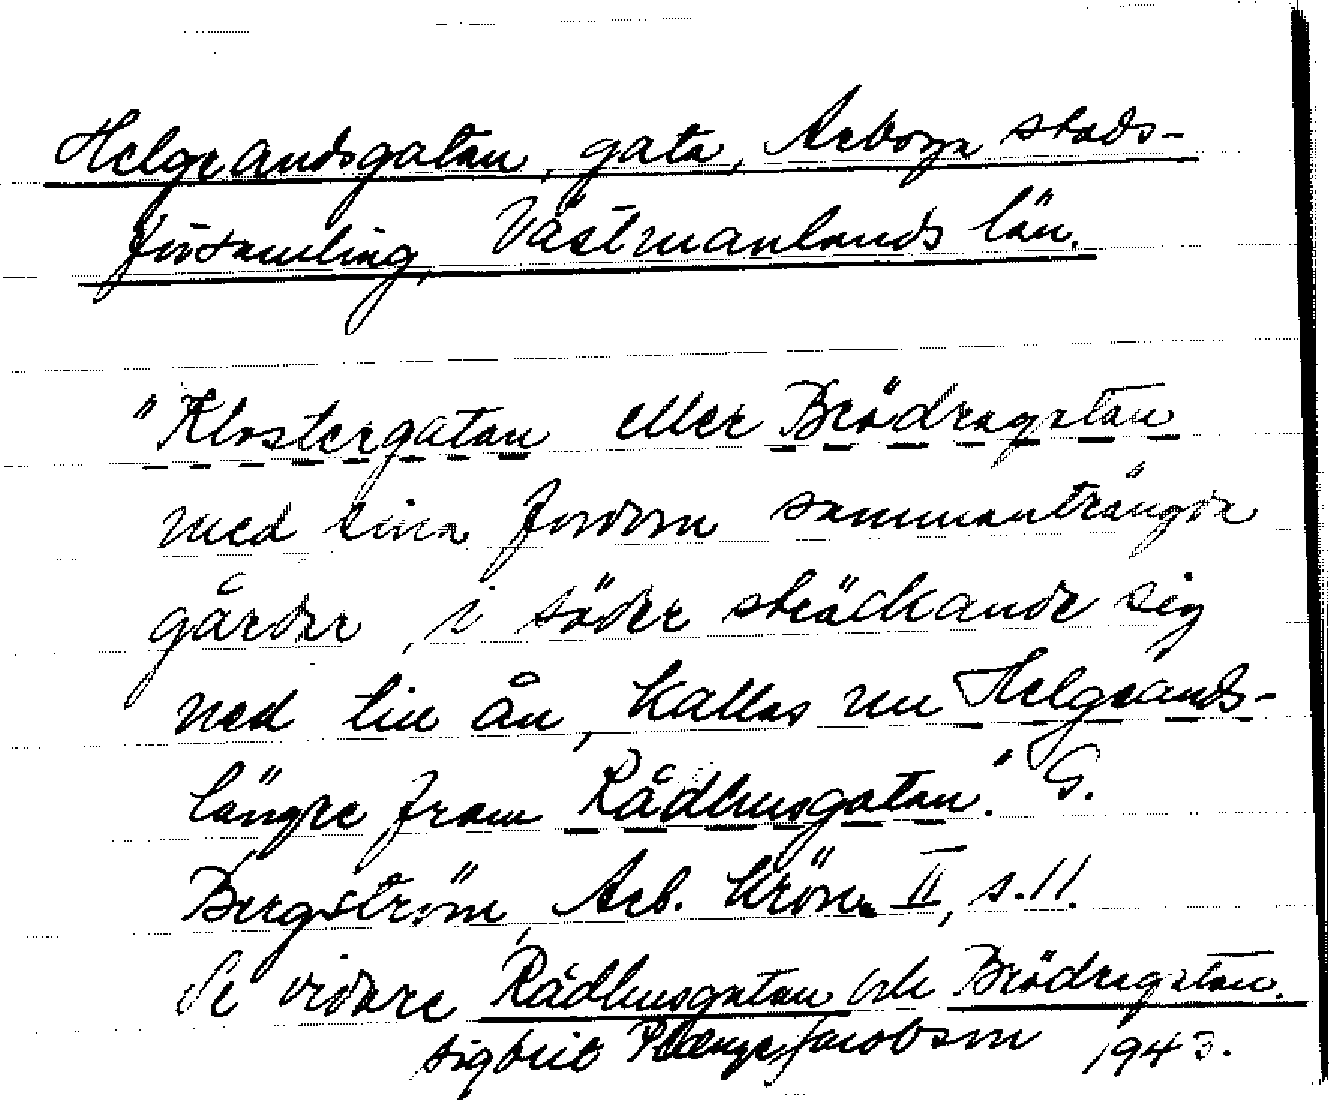 Helgeandsgatan, gata, Arboga stads-
församling, Västmanlands län.
"Klostergatan eller Brödragatan
med sina fordom sammanträngda
gårdar, i söder sträckande sig
ned till ån, kallas nu Helgeands-
längre fram Rådhusgatan." G.
Bergström, Arb. krön. II, s. 11.
Se vidare Rådhusgatan och Brödragatan.
Sigbrit Jacobson 1943.